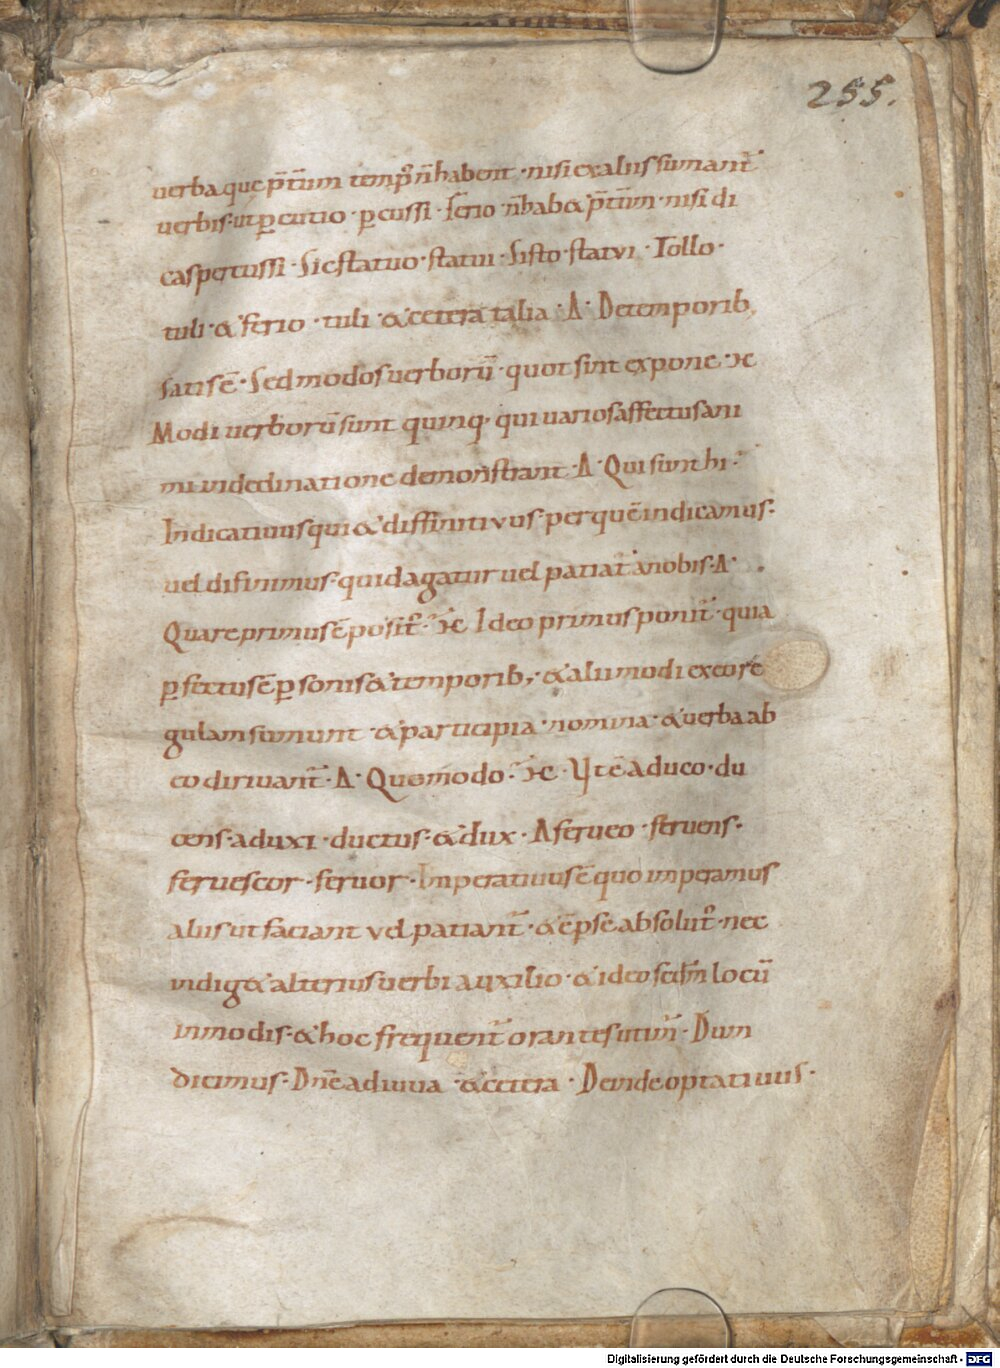 255.
uerba que p̄t̄um temp̄r n̄ habent · nisi ex aliis sumant̄
uerbis · ut ꝑcutio · ꝑcussi · ferio · n̄ hab& p̄t̄um · nisi di
cas percussi · Sic statuo · statui · Sisto · statvi · Tollo ·
tuli · & fero · tuli · & cetera talia · Δ · De temporib;
satis ē · Sed modos uerborū · quot sint expone · ϰ
Modi uerborū sunt quinq; qui uarios affectus ani
mi vi declinatione demonstrant · Δ · Qui sunt hi ·
Indicatiuus qui & diffinitivus · per quē indicamus ·
uel difinimus · quid agatur uel patiat̄ a nobis · Δ ·
Quare primus ē posit̄ · ϰ Ideo primus ponit̄ · quia
ꝑfectus ē ꝑsonis & temporib; · & alii modi ex eo re
gulam sumunt · & participia · nomina · & uerba ab
eo dirivant̄ · Δ · Quomodo · ϰ · Vt ē a duco · du
cens · a duxi · ductus · & dux · A ferueo · feruens ·
feruescor · feruor · Imperatiuus ē quo imperamus
aliis ut faciant vel patiant̄ · & ē p se absolut̄ · nec
indig& alterius uerbi auxilio · & ideo scdm̄ locū
in modis · & hoc frequent̄ orantes utim̄ · Dum
dicimus · Dn̄e adiuua · & cetera · Deinde optatiuus ·
Digitalisierung gefördert durch die Deutsche Forschungsgemeinschaft - DFG